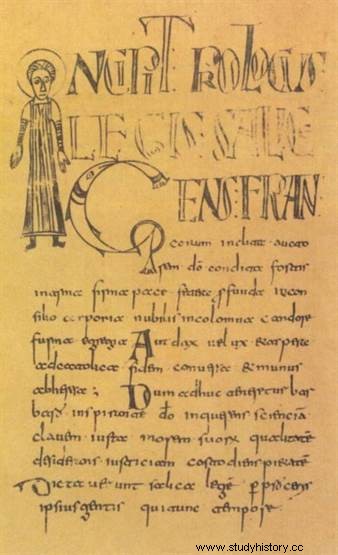 INCIPIT PROLOGUS
LEGIS SALICE
GENS FRAN
corum inclita aucto
rem do condita fortis
in arma firma pace fetere profunda in con
silio corporia nobilis incolomna candore
forma egregia Audax velux et aspera
ad catolica fidem conversa emunus
ab herese ; Dum adhuc teneretur bar
bara inspirante do inquerens sciencia
clavem iuxta morem suorum qualitate
desiderans iusticiam costodiens pietate
Dictaverunt salica lege per proceris
ipsius gentis qui tunc tempore
www.studyhistory.cc